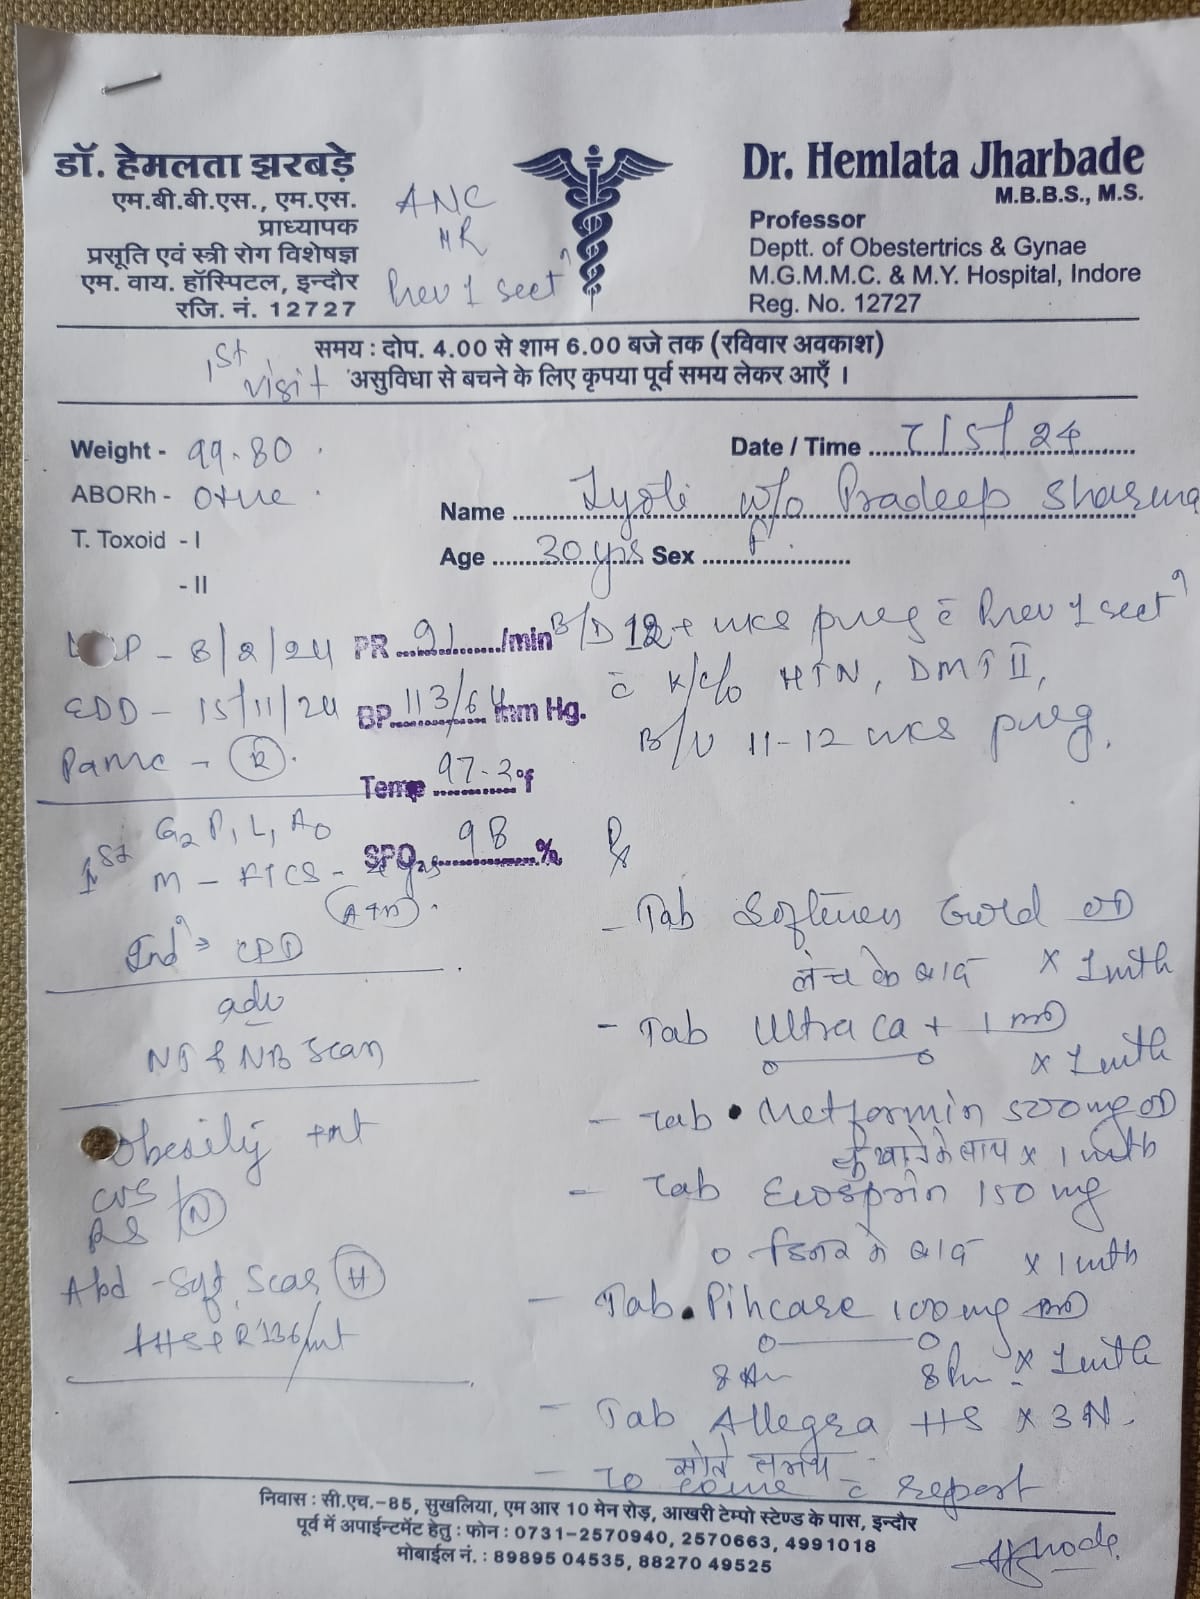 डॉ. हेमलता झरबड़े
एम.बी.बी.एस., एम.एस.
प्राध्यापक
प्रसूति एवं स्त्री रोग विशेषज्ञ
एम. वाय. हॉस्पिटल, इन्दौर
रजि. नं. 12727
ANC
HR
Prev 1 sect
Dr. Hemlata Jharbade
M.B.B.S., M.S.
Professor
Deptt. of Obestertrics & Gynae
M.G.M.M.C. & M.Y. Hospital, Indore
Reg. No. 12727
समय : दोप. 4.00 से शाम 6.00 बजे तक (रविवार अवकाश)
असुविधा से बचने के लिए कृपया पूर्व समय लेकर आएँ ।
1st visit
Weight - 99.80
ABORh - O+ve
T. Toxoid - I
- II
Date / Time 7/5/24
Name Jyoti w/o Pradeep Sharma
Age 30 yrs Sex F
- 8/2/24
EDD - 15/11/24
PR 91 /min
BP 113/64 mm Hg.
Temp 97.2 °f
SPO2 98 %
B/D 12+ wks preg c̄ Prev 1 sect
c̄ K/c/o HTN, DMT II,
B/U 11-12 wks preg.
G2 P1 L1 A0
1st M - FTCS -
Ind CPD
adv
NT & NB Scan
Obesity +nt
CVS
RS N
Abd - Soft, Scar H
FHS + R 136/mt
Rx
- Tab Softeron Gold OD
लंच के बाद x 1 mth
- Tab Ultra Ca + 1 BD
x 1 mth
- Tab Metformin 500mg OD
खाने के साथ x 1 mth
- Tab Ecosprin 150 mg
डिनर के बाद x 1 mth
- Tab Pihcare 100mg BD
8 Am 8 Pm x 1 mth
- Tab Allegra HS x 3 N
सोते समय
- To come c̄ report
निवास : सी.एच.-85, सुखलिया, एम आर 10 मेन रोड़, आखरी टेम्पो स्टेण्ड के पास, इन्दौर
पूर्व में अपाईन्टमेंट हेतु : फोन : 0731-2570940, 2570663, 4991018
मोबाईल नं. : 89895 04535, 88270 49525